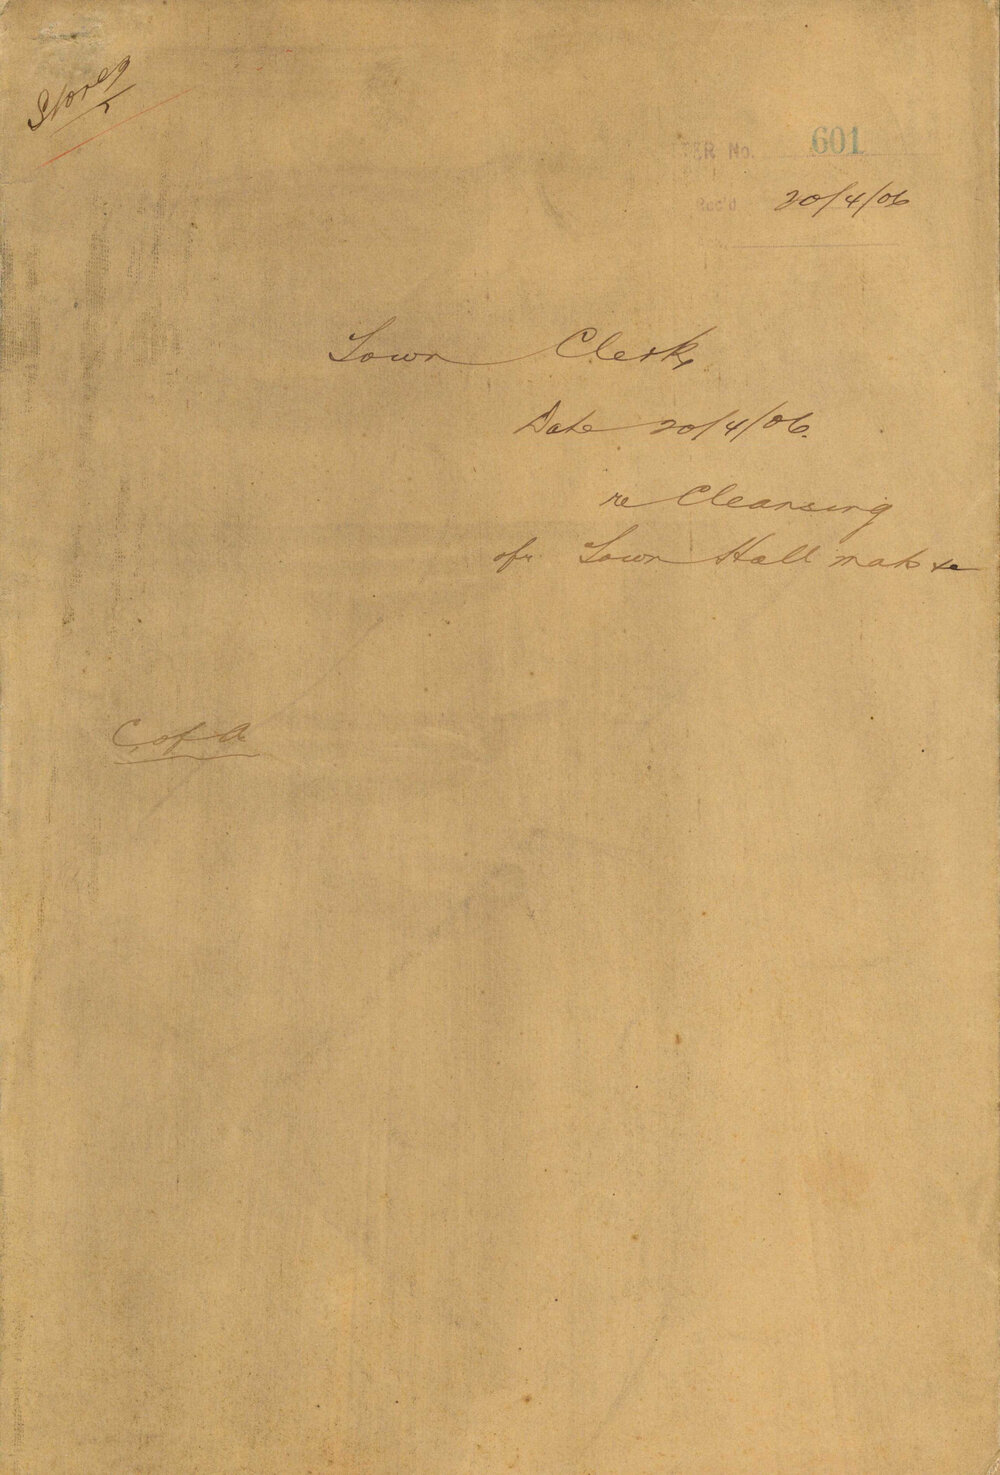 Storey
LETTER No. 601
Rec'd 20/4/06
Town Clerk,
Date 20/4/06.
re Cleansing
of Town Hall mats &c
C of A